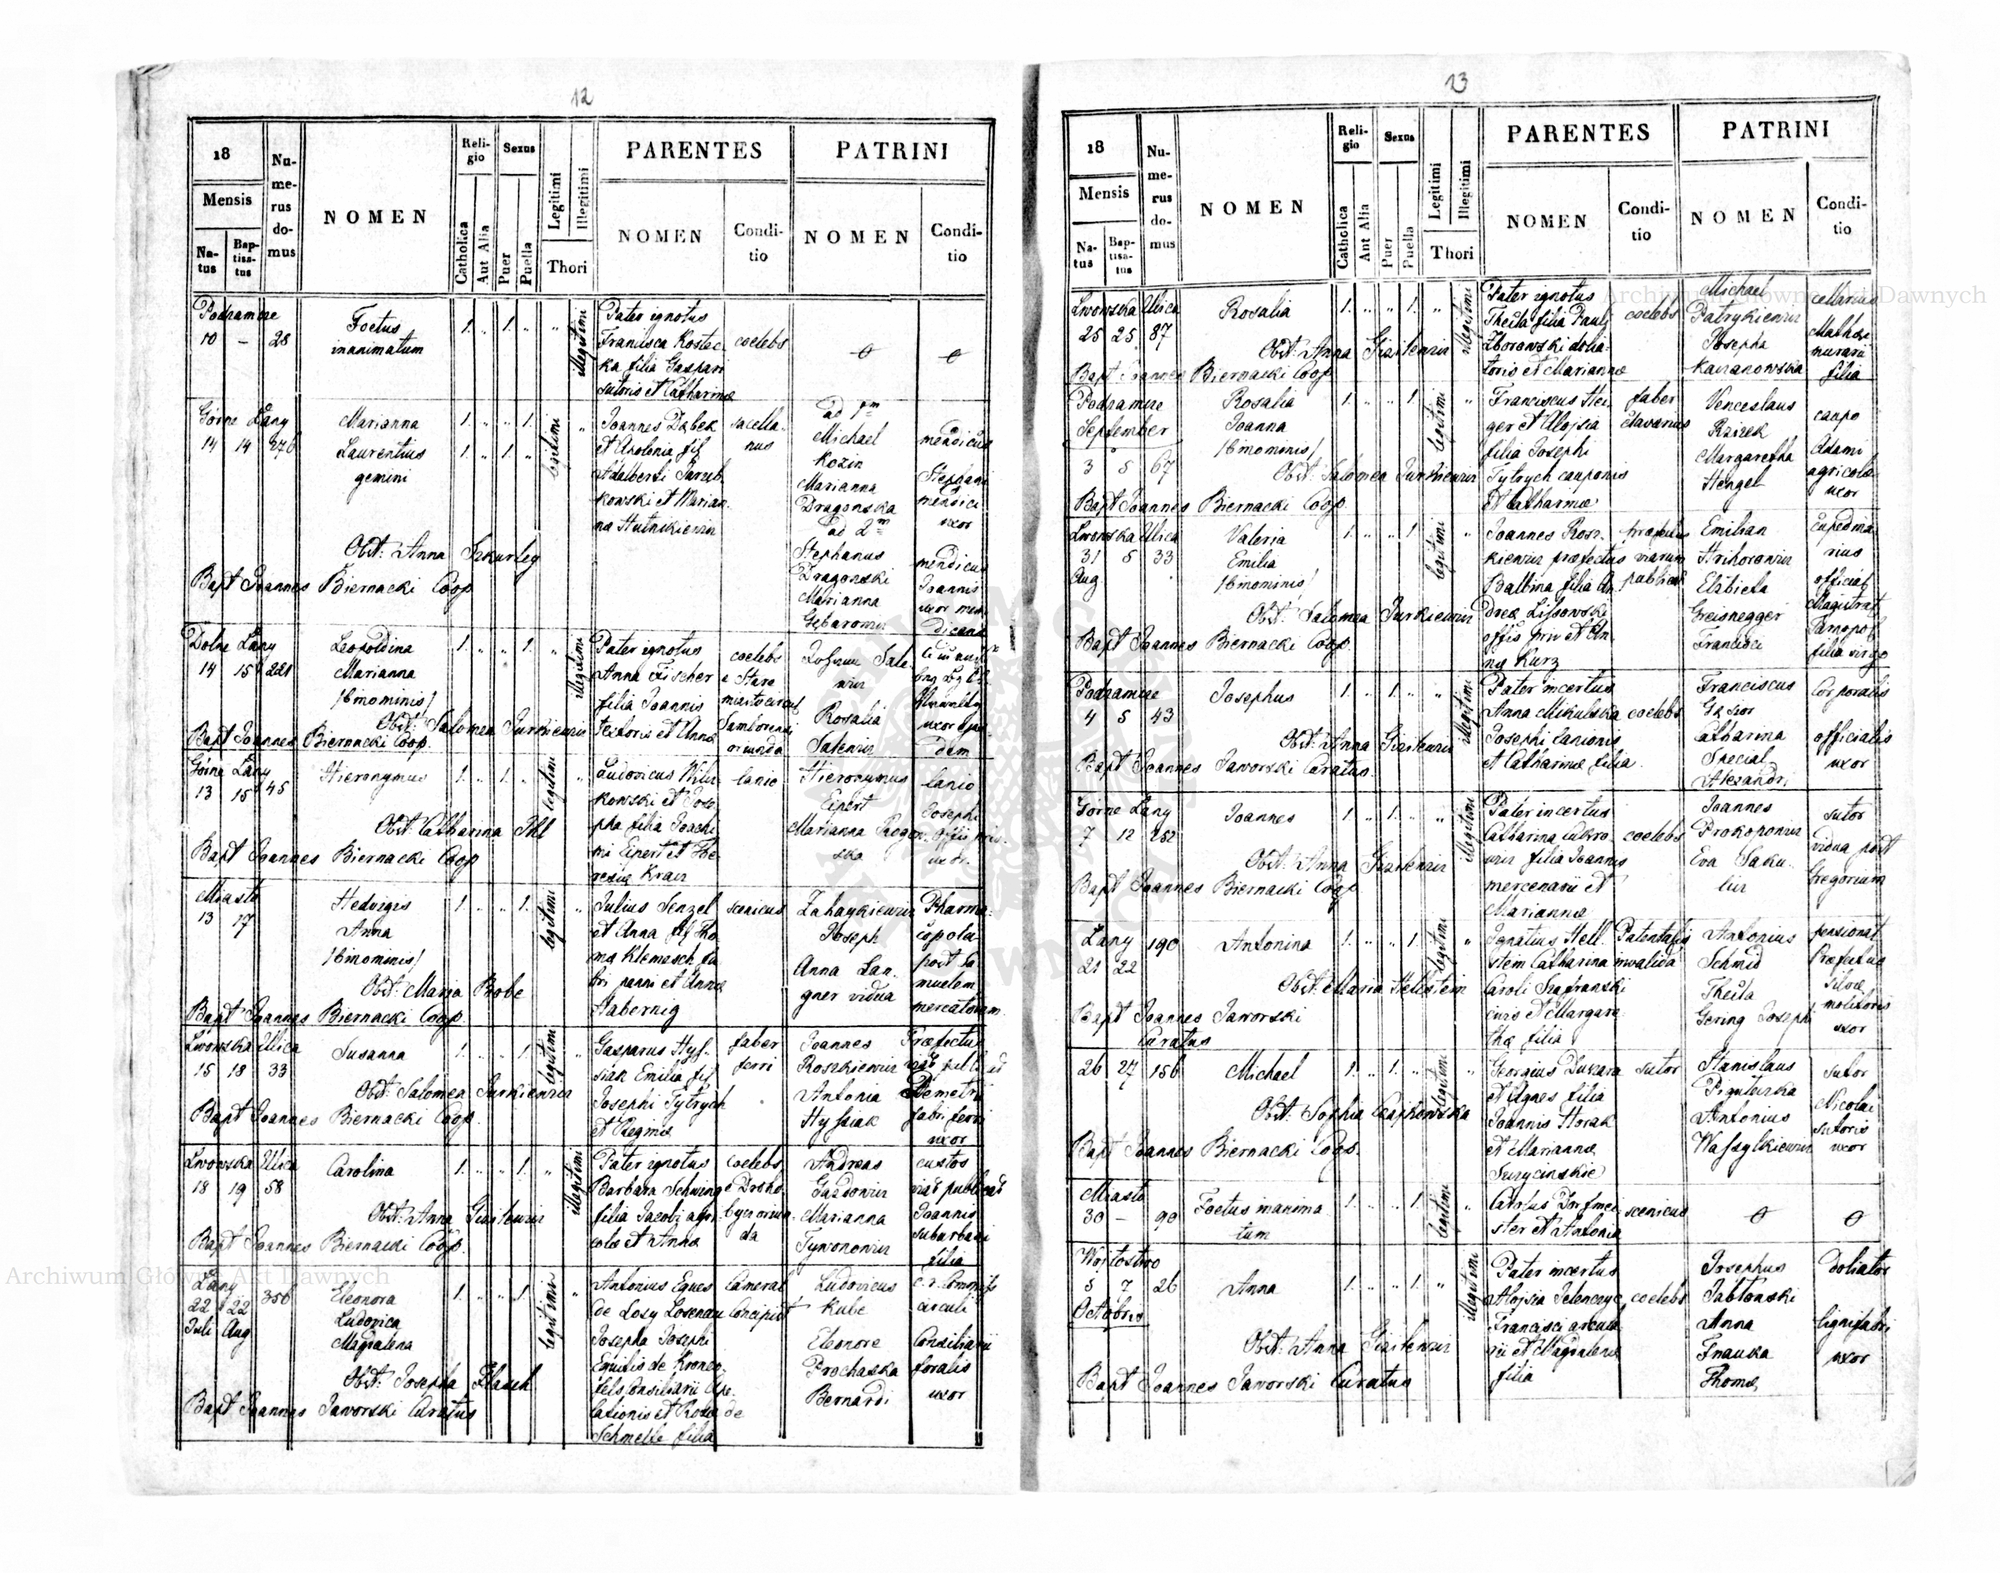 12
18
Mensis
Natus
Baptisatus
Numerus domus
NOMEN
Religio
Catholica
Aut Alia
Sexus
Puer
Puella
Legitimi
Illegitimi
Thori
PARENTES
NOMEN
Conditio
PATRINI
NOMEN
Conditio
Podzamcze
10 – 28
Foetus
inanimatum
1. „ 1. „ „
illegitimi
Pater ignotus
Francisca Kostec
ka filia Gaspari
sutoris et Catharinæ
coelebs
Górne Łany
14 14 276
Marianna
Laurentius
gemini
1. „ „ 1.
1. „ 1. „
legitimi
Joannes Dąbek
et Apolonia fil
Adalberti
kowski et Marian
na
sacella
nus
ad 1m
Michael
Kozin
Marianna
Dragonska
ad 2m
Stephanus
Dragonski
Marianna
mendicus
Stephani
mendici
uxor
mendicus
Joannis
uxor men
dicans
Obst: Anna
Bapt Joannes Biernacki Coop
Dolne Łany
14 15 221
Leopoldina
Marianna
/binominis/
1. „ „ 1. „
illegitimi
Pater ignotus
Anna Fischer
filia Joannis
textoris et Annæ
coelebs
e Stara
Samborensi
oriunda
Rosalia
uxor
Obst: Salomea Jurkiewicz
Bapt Joannes Biernacki Coop.
Górne Łany
13 15 45
Hieronymus
1. „ 1. „ „
legitimi
Ludovicus
kowski et Jose
pha filia Joachi
mi Eipert et The
resiæ Krair
lanio
Hieronymus
Eipert
Marianna Rogow
ska
lanio
Josephi
uxor
Obst: Catharina Ihl
Bapt Joannes Biernacki Coop
Miasto
13 17
Hedvigis
Anna
/binominis/
1. „ „ 1. „
legitimi
Julius Senzel
et Anna fil Tho
mæ Klemesch fa
bri panni et Annæ
Habernig
scenicus
Zahaykiewicz
Joseph
Anna Lan
gner vidua
Pharma
copola
post Sa
muelem
mercatorem
Obst: Maria Bobe
Bapt Joannes Biernacki Coop.
Lwowska Ulica
15 18 33
Susanna
1. „ „ 1. „
legitimi
Gasparus Hys
siak Emilia fil
Josephi Tytrych
et Reginæ
faber
ferri
Joannes
Roszkiewicz
Antonia
Hyssiak
Præfectus
Demetri
fabri ferri
uxor
Obst: Salomea Jurkiewicz
Bapt Joannes Biernacki Coop.
Lwowska Ulica
18 19 58
Carolina
1. „ „ 1. „
illegitimi
Pater ignotus
Barbara Schwing
filia Jacobi agri
colæ et Annæ
coelebs
e Droho
bycz oriun
da
Andreas
Gazdowicz
Marianna
Tymonowicz
custos
viæ publicæ
Joannis
suburbani
filia
Obst: Anna
Bapt Joannes Biernacki Coop.
Łany
22 22 350
Juli Aug
Eleonora
Ludovica
Magdalena
1. „ „ 1. „
legitimi
Antonius Eques
de Losy Losenau
Josepha Josephi
Equitis de
fels Consiliarii Ape
lationis et Rosæ de
Schmelle filia
Cameral
Concipist
Ludovicus
Kube
Eleonore
Prochaska
Bernardi
circuli
Consiliarii
foralis
uxor
Obst: Josepha
Bapt Joannes Jaworski Curatus
13
18
Mensis
Natus
Baptisatus
Numerus domus
NOMEN
Religio
Catholica
Aut Alia
Sexus
Puer
Puella
Legitimi
Illegitimi
Thori
PARENTES
NOMEN
Conditio
PATRINI
NOMEN
Conditio
Lwowska Ulica
25 25 87
Rosalia
1. „ „ 1. „
illegitimi
Pater ignotus
Thecla filia Pauli
Zborowski dolia
toris et Mariannæ
coelebs
Michael
Patrykiewicz
Josepha
Kazanowska
Mathæi
murarii
filia
Obst: Anna
Bapt Joannes Biernacki Coop
Podzamcze
September
3 5 67
Rosalia
Joanna
/binominis/
1. „ „ 1. „
legitimi
Franciscus Hei
ger et Aloysia
filia Josephi
Tytrych cauponis
et Catharinæ
faber
clavarius
Venceslaus
Margaretha
Hengel
caupo
Adami
agricolæ
uxor
Obst: Salomea Jurkiewicz
Bapt Joannes Biernacki Coop.
Lwowska Ulica
31 5 33
Aug
Valeria
Emilia
/binominis/
1. „ „ 1. „
legitimi
Joannes Rosz
kiewicz præfectus
Balbina filia An
dreæ Lissowski
offis priv et An
næ Kurz
viarum
public
Emilian
Elżbieta
Greisnegger
Francisci
cupedina
rius
official
Magistrat
Tarnopol
filia virgo
Obst: Salomea Jurkiewicz
Bapt Joannes Biernacki Coop.
Podzamcze
4 5 43
Josephus
1. „ 1. „ „
illegitimi
Pater incertus
Anna Mikulska
Josephi lanionis
et Catharinæ filia
coelebs
Franciscus
Gąsior
Catharina
Special
Alexandri
Corporalis
officialis
uxor
Obst: Anna
Bapt Joannes Jaworski Curatus.
Górne Łany
7 12 252
Joannes
1. „ 1. „ „
illegitimi
Pater incertus
Catharina Cukro
wicz filia Joannis
mercenarii et
Mariannæ
coelebs
Joannes
Prokopowicz
Eva Saku
licz
sutor
vidua post
Gregorium
Obst: Anna
Bapt Joannes Biernacki Coop
Łany
21 22 190
Antonina
1. „ „ 1. „
legitimi
Ignatius Hell
stein Catharina
Caroli Szafranski
civis et Margare
thæ filia
Patentalis
invalida
Antonius
Schmid
Thecla
Gering Josephi
pensionat
Præfectus
silvæ
molitoris
uxor
Obst: Maria Hellstein
Bapt Joannes Jaworski
Curatus
26 27 156
Michael
1. „ 1. „ „
legitimi
Georgius
et Agnes filia
Joannis Horak
et Mariannæ
sutor
Stanislaus
Antonius
Wassylkiewicz
sutor
Nicolai
sutoris
uxor
Obst: Sophia Czajkowska
Bapt Joannes Biernacki Coop.
Miasto
30 – 90
Foetus inanima
tum
1. „ „ 1. „
legitimi
Carolus Dorfmei
ster et Antonia
scenicus
Wojtostwo
5 7 26
Octobris
Anna
1. „ „ 1. „
illegitimi
Pater incertus
Aloysia
Francisci arcula
rii et Magdalenæ
filia
coelebs
Josephus
Jabłonski
Anna
Thomæ
doliator
lignifabri
uxor
Obst: Anna
Bapt Joannes Jaworski Curatus
Archiwum Główne Akt Dawnych
Archiwum Główne Akt Dawnych